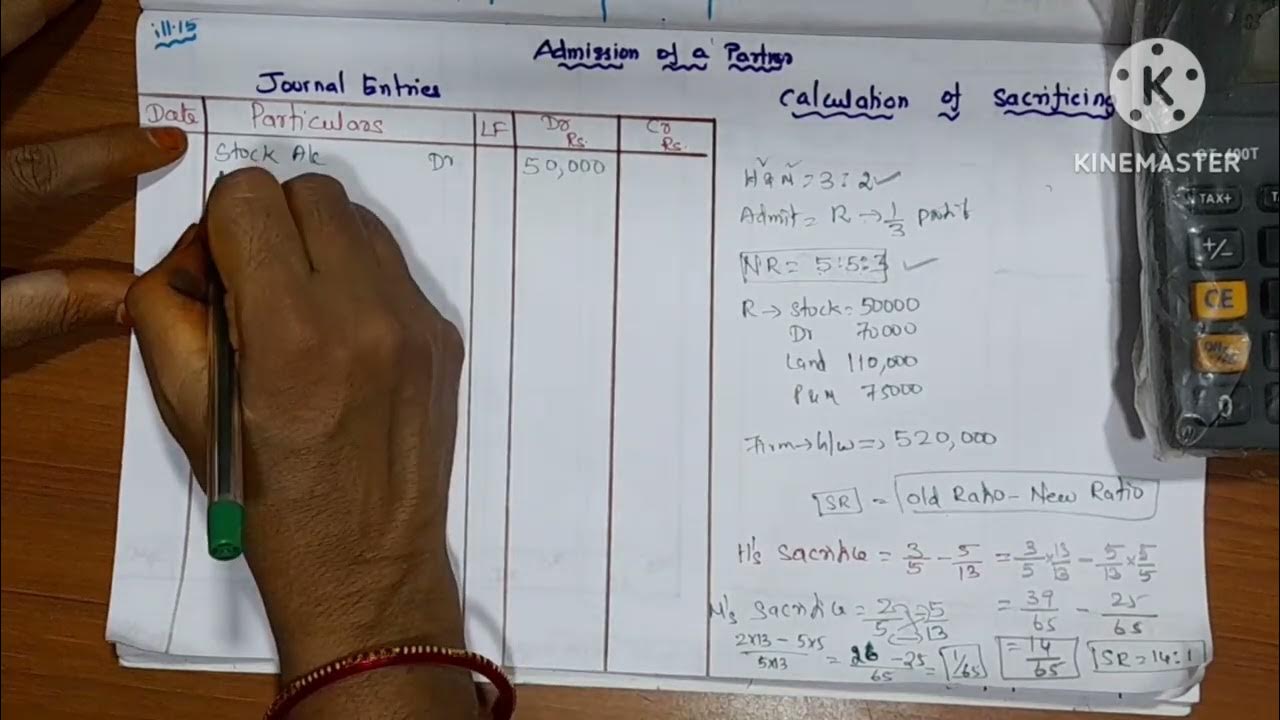 ill.15
Admission of a Partner
Journal Entries
Date Particulars LF Dr Rs. Cr Rs.
Stock A/c Dr 50,000
Calculation of Sacrificing
H & N = 3:2 ✓
Admit = R → 1/3 profit
NR = 5:5:3 ✓
R → Stock = 50000
Dr 70000
Land 110,000
P&M 75000
Firm → G/W => 520,000
SR = Old Ratio - New Ratio
H's Sacrifice = 3/5 - 5/13 = 3/5 × 13/13 - 5/13 × 5/5
= 39/65 - 25/65
= 14/65
SR = 14:1
Sacrifice = 2/5 - 5/13
2x13 - 5x5 / 5x13 = 26 - 25 / 65 = 1/65
K
KINEMASTER
TAX+
+/-
CE
0